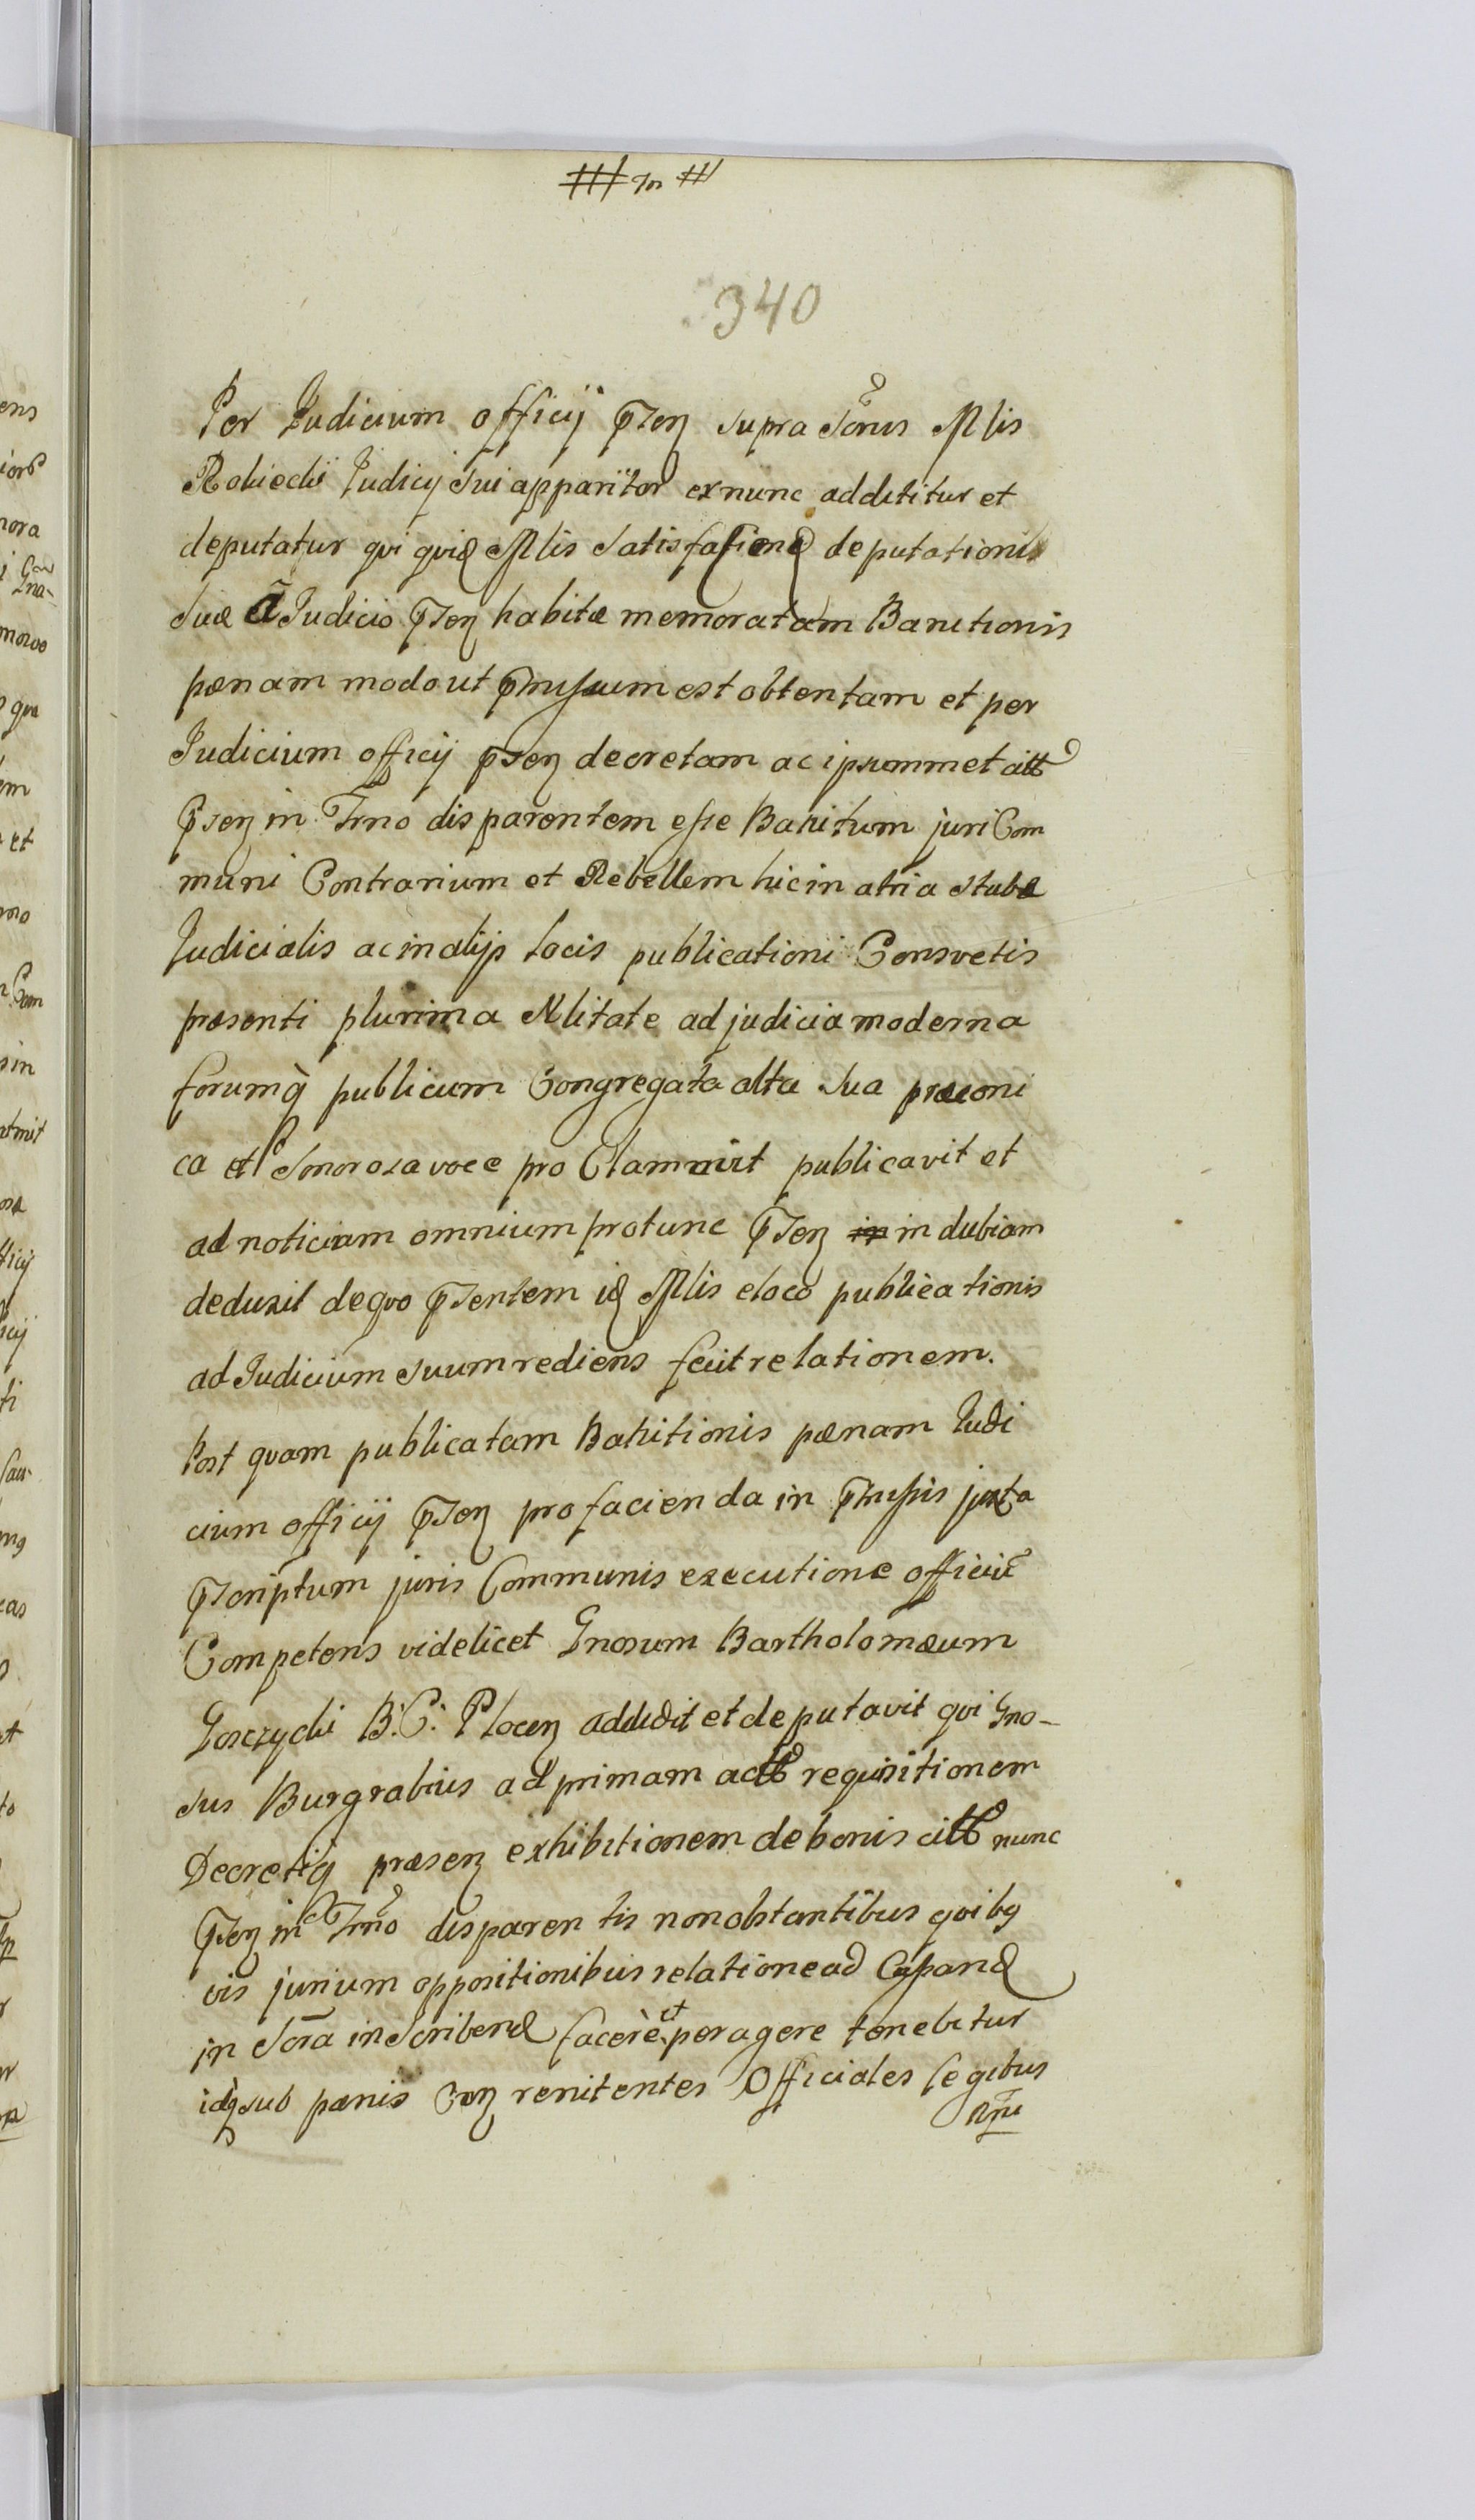 340
Per Judicium officij pnsen supra Scrius Mlis
Rokiecki Judicij sui apparitor exnunc addititur et
deputatur qui quid Mlis satisfaciend deputationis
suæ ã Judicio pnsen habitæ memoratam Banitionis
pænam modo ut pmissum est obtentam et per
Judicium officij pnsen decretam ac ipsummet citt
pnsen in Trno disparentem esse Banitum juri Com
muni Contrarium et Rebellem hic in atria stubæ
Judicialis ac in alijs locis publicationi Consvetis
præsenti plurima Nlitate ad judicia moderna
forumq publicum Congregata alta sua præconi
ca et Sonorosa voce pro Clamavit publicavit et
ad noticiam omnium protunc pnsen in in dubiam
deduxit de quo pnsentem id Mlis e loco publicationis
ad Judicium suum rediens fecit relationem.
Post quam publicatam Banitionis pænam Judi
cium officij pnsen pro facienda in pmissis juxta
pscriptum juris Communis executione officiũ
Competens videlicet Gnosum Bartholomæum
Gosczycki B: C: Plocen addidit et deputavit qui Gno-
sus Burgrabius ad primam actt requisitionem
Decretiq præsen exhibitionem de bonis citt nunc
pnsen in Trno disparentis nonobstantibus quibq
vis jurium oppositionibus relatione ad Capand
in Scra inscribend facere et peragere tenebitur
idq sub pænis con renitentes Officiales legibus